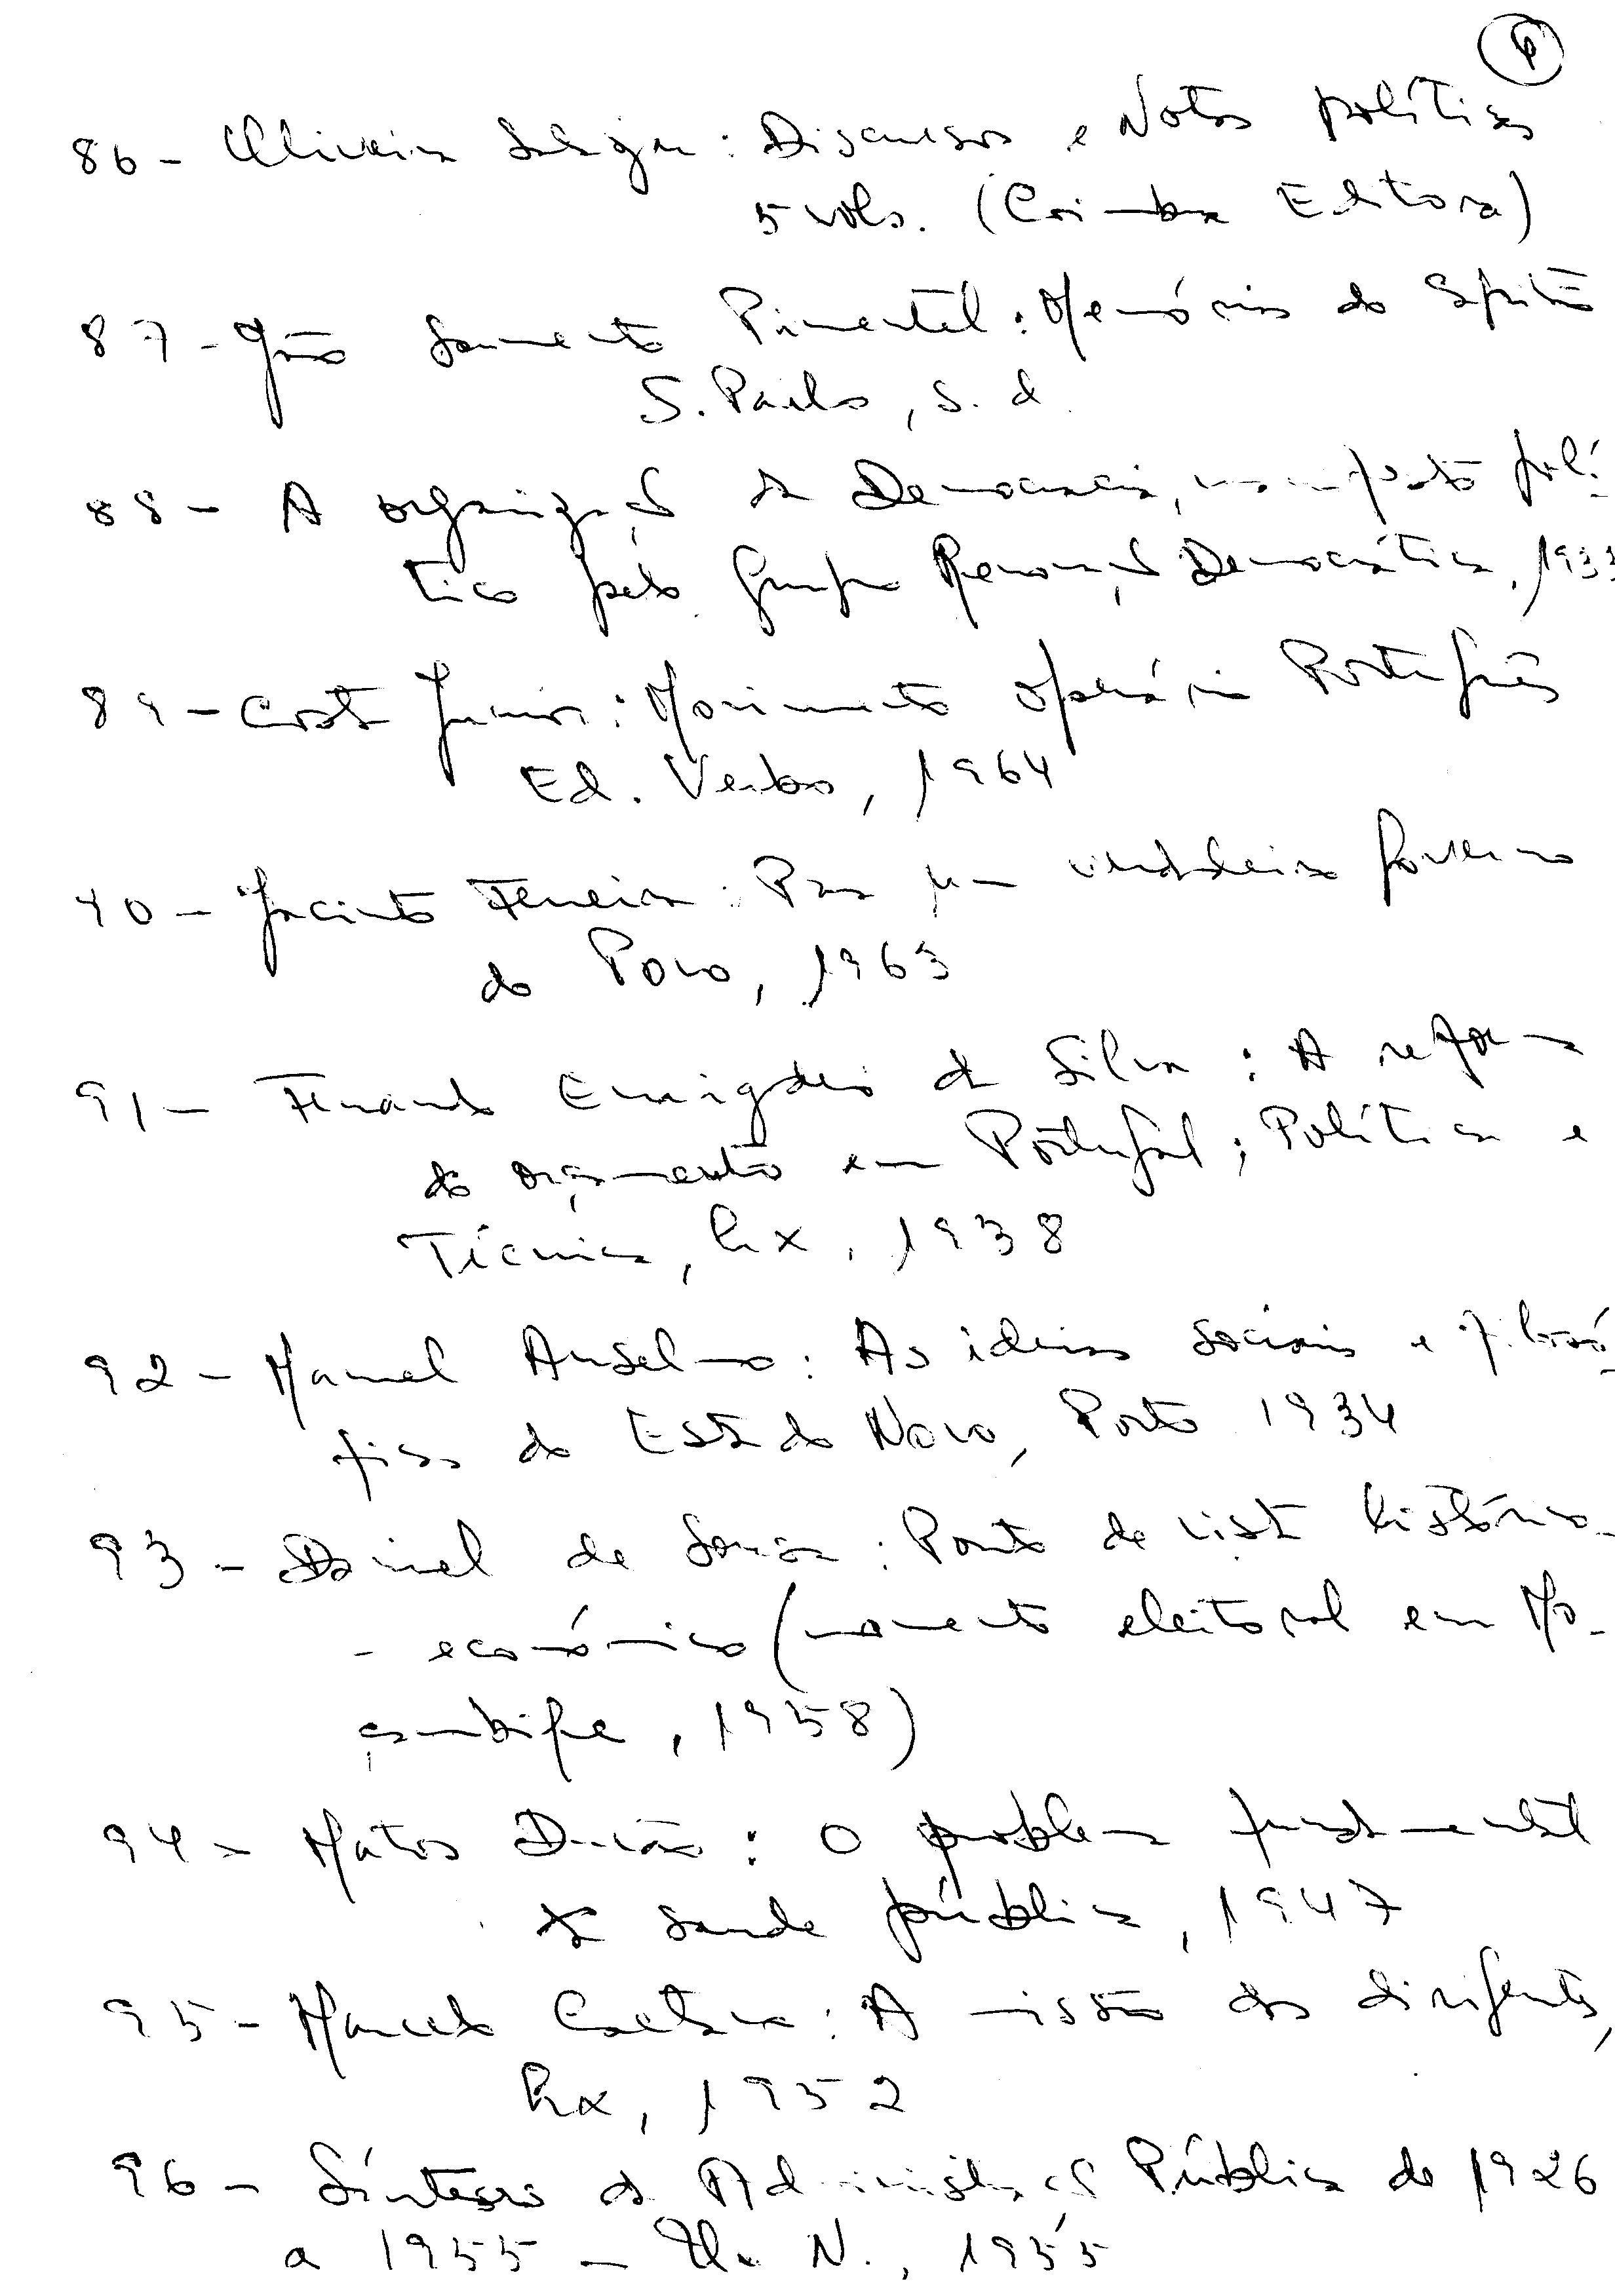 86 - Oliveira Salazar: Discursos e Notas políticas
5 vols. (Coimbra Editora)
87 - João Sarmento Pimentel: Memórias do Capitão
S. Paulo, s. d.
88 - A organização da Democracia, manifesto polí-
tico pelo Grupo Renovação Democrática, 1933
89 - Costa Júnior: Movimento operário Português
Ed. Verbo, 1964
90 - Jacinto Ferreira: Para um verdadeiro governo
do Povo, 1963
91 - Fernando Emygdio da Silva: A reforma
do orçamento em Portugal; Política e
Técnica, Lx, 1938
92 - Manuel Anselmo: As ideias sociais e filosó-
ficas do Estado Novo, Porto 1934
93 - Daniel de Sousa: Ponto de vista histórico-
- económico (momento eleitoral em Mo-
çambique, 1958)
94 - Matos : O problema fundamental
da saude pública, 1947
95 - Marcelo Caetano: A missão dos dirigentes,
Lx, 1952
96 - Sínteses da Administração Pública de 1926
a 1955 - U. N., 1955